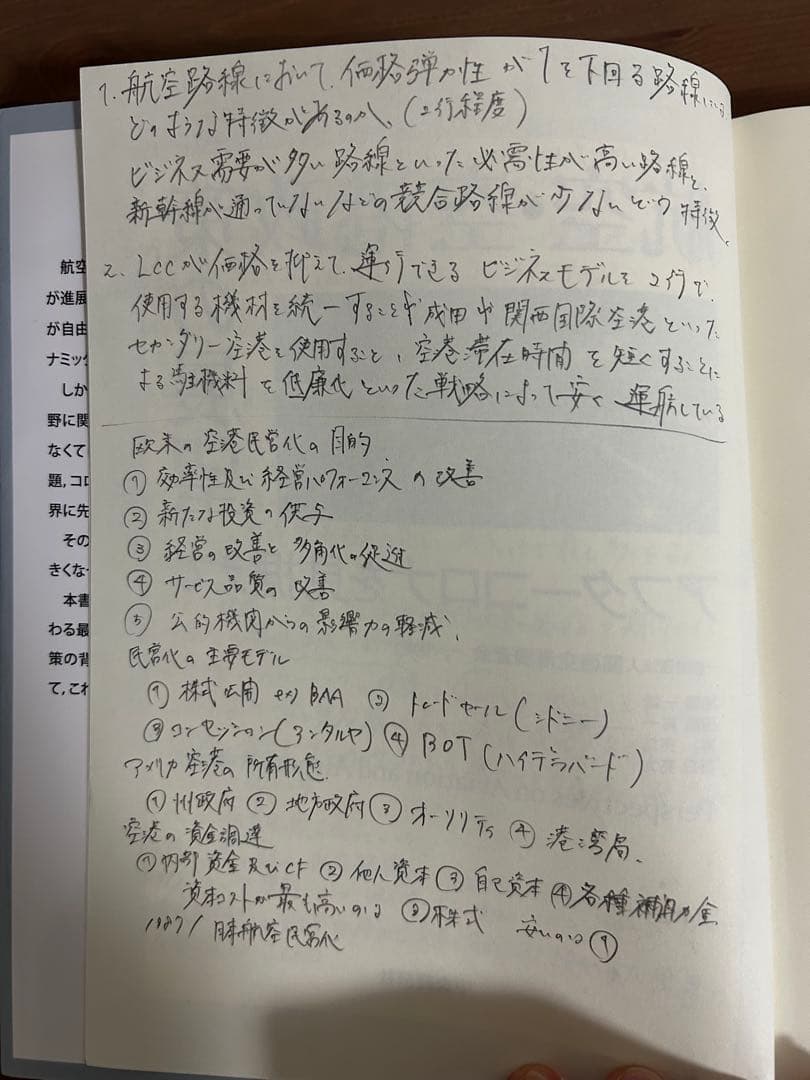 1. 航空路線において、価格弾力性が1を下回る路線には
どのような特徴があるのか。(2行程度)
ビジネス需要が多い路線といった必需性が高い路線と、
新幹線が通っていないなどの競合路線が少ないという特徴。
2. LCCが価格を抑えて、運行できるビジネスモデルを2行で、
使用する機材を統一することや成田や関西国際空港といった
セカンダリー空港を使用すること、空港滞在時間を短くすることに
よる駐機料を低廉化といった戦略によって安く運航している
欧米の空港民営化の目的
① 効率性及び経営パフォーマンスの改善
② 新たな投資の供与
③ 経営の改善と多角化の促進
④ サービス品質の改善
⑤ 公的機関からの影響力の軽減、
民営化の主要モデル
① 株式公開 ex) BAA ② トレードセール(シドニー)
③ コンセッション(アンタルヤ) ④ BOT(ハイデラバード)
アメリカ空港の所有形態
① 州政府 ② 地方政府 ③ オーソリティ ④ 港湾局、
空港の資金調達
① 内部資金及びCF ② 他人資本 ③ 自己資本 ④ 各種補助金
資本コストが最も高いのは ③ 株式 安いのは ①
1987/ 日本航空民営化
航空
が進展
が自由
ナミック
しか
野に関
なくて
題,コロ
界に先
その
きくな
本書
わる最
策の背
て,これ